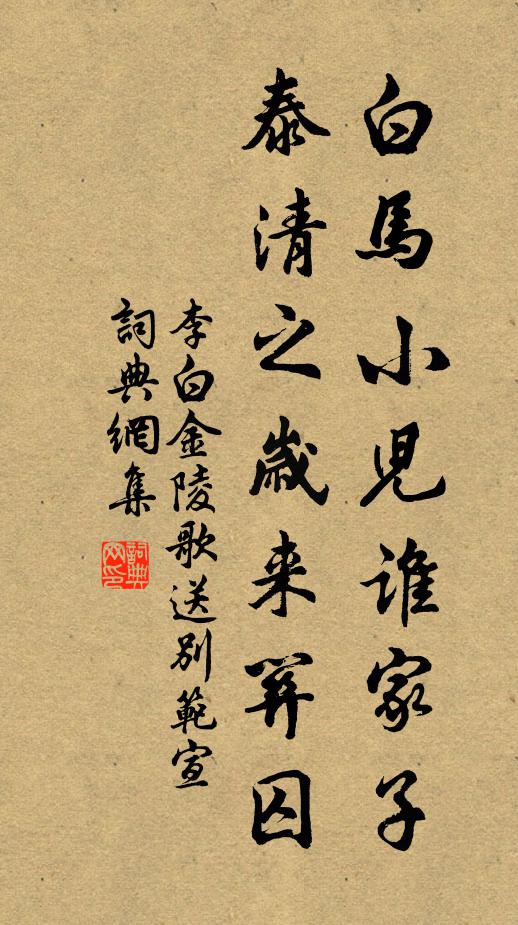 白馬小兒誰家子
泰清之歲来關囚
李白金陵歌送別範宣
詞典網集
詞典網印